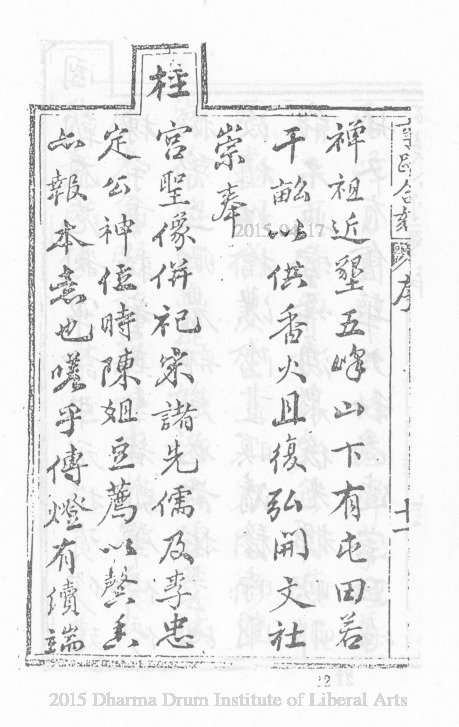 序
十一
禪祖近墾五峰山下有屯田若
干畝以供香火且復弘開文社
崇奉
梓
宮聖像併祀宋諸先儒及李忠
定公神位時陳俎豆薦以馨香
亦報本意也嗟乎傳燈有續端
2015.04.17
12
2015 Dharma Drum Institute of Liberal Arts